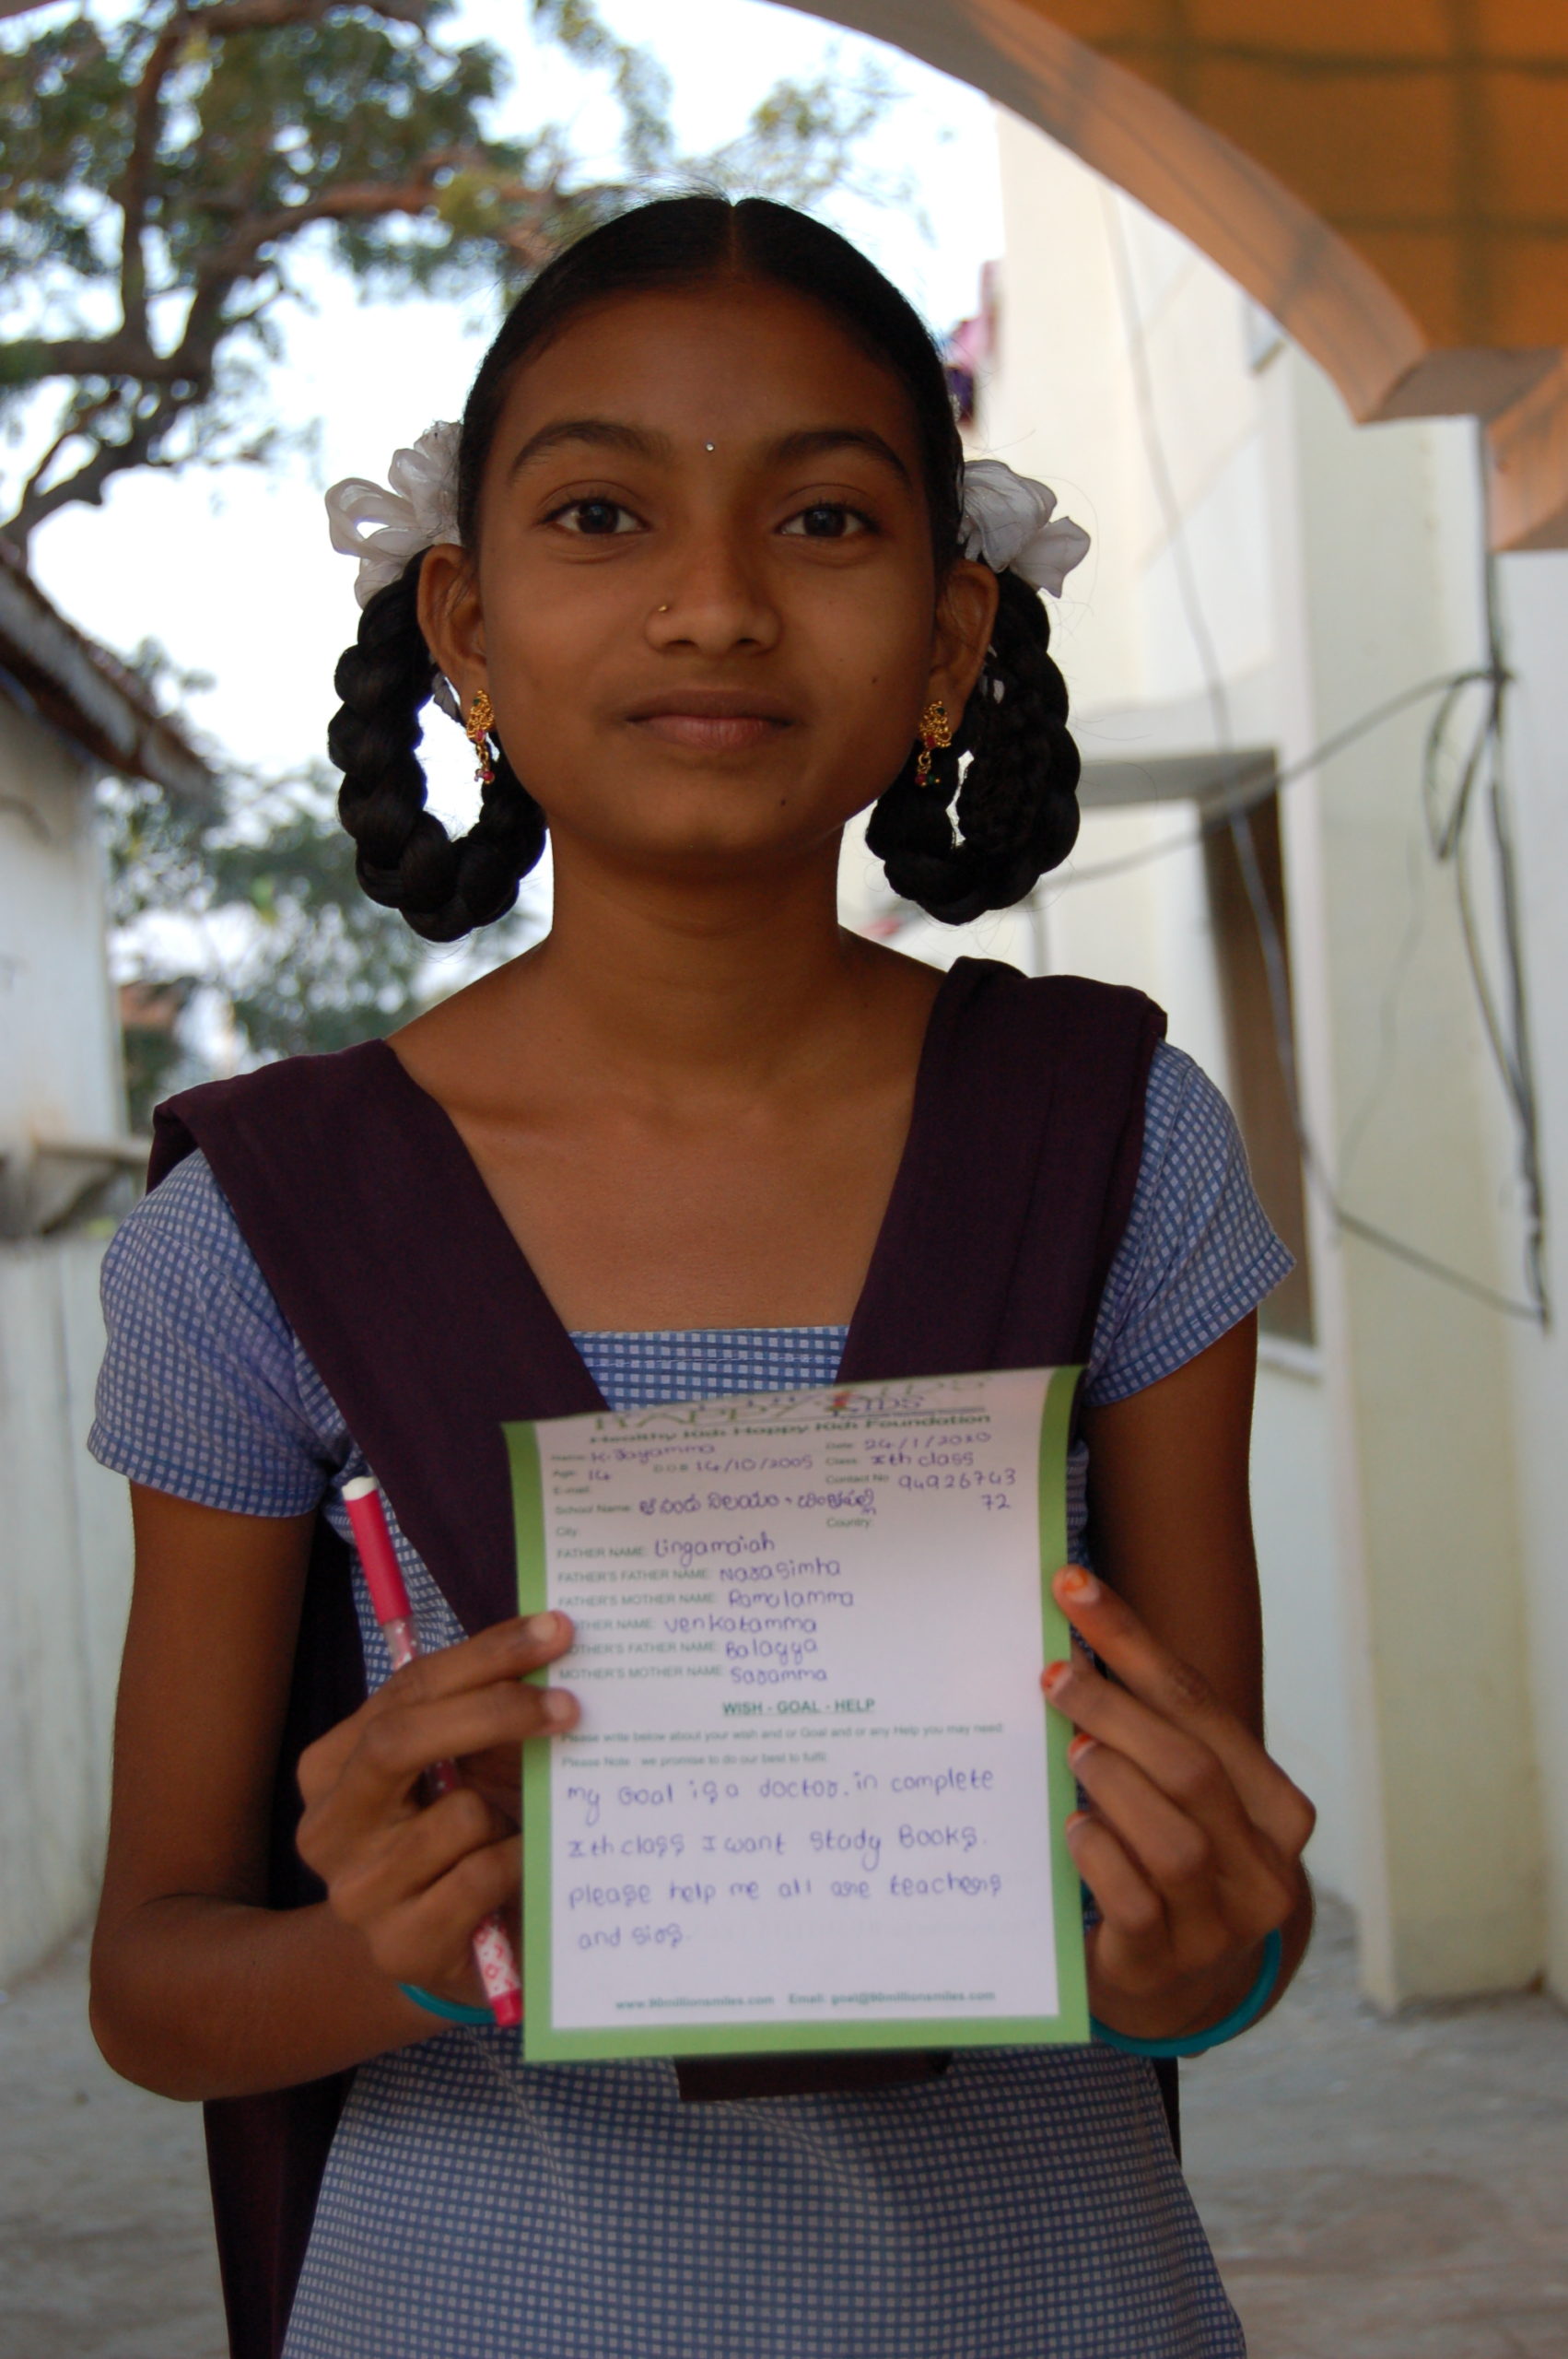 HAPPY KIDS
Healthy Kids Happy Kids Foundation
Name: K. Jayamma Date: 24/1/2020
Age: 14 D.O.B 14/10/2005 Class: xth class
E-mail: Contact No 94926743
72
School Name:
City: Country:
FATHER NAME: Lingamaiah
FATHER'S FATHER NAME: Narasimha
FATHER'S MOTHER NAME: Ramulamma
MOTHER NAME: venkatamma
MOTHER'S FATHER NAME: Balayya
MOTHER'S MOTHER NAME: Saramma
WISH - GOAL - HELP
Please write below about your wish and or Goal and or any Help you may need.
Please Note : we promise to do our best to fulfil.
my Goal is a doctor. in complete
xth class I want study Books.
please help me all are teachers
and sirs.
www.90millionsmiles.com Email: goal@90millionsmiles.com